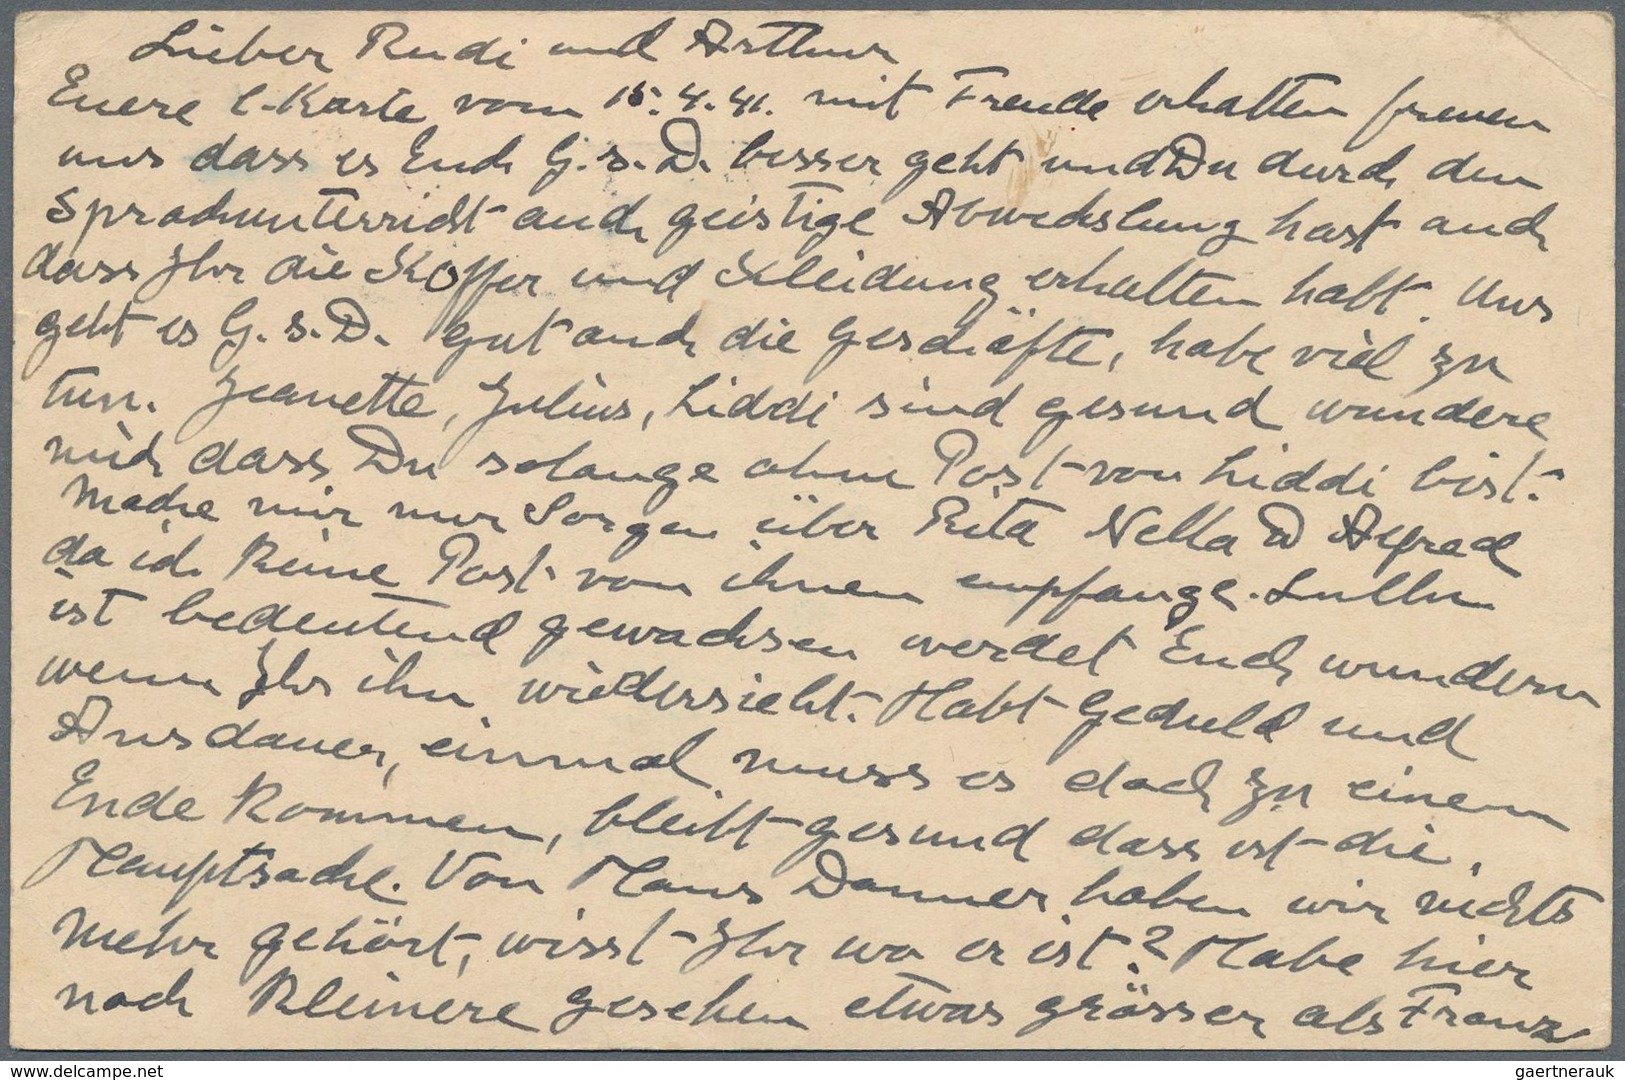 Lieber Rudi und Arthur
Euere l-Karte vom 15.4.41. mit Freude erhalten freuen
uns dass es Euch G.s.D. besser geht und Du durch den
Sprachunterricht auch geistige Abwechslung hast auch
dass Ihr die Koffer und Kleidung erhalten habt. Uns
geht es G.s.D. gut auch die Geschäfte, habe viel zu
tun. Jeanette, Julius, Liddi sind gesund wundere
mich dass Du solange ohne Post von Liddi bist.
Mache mir nur Sorgen über Rita Nella Alfred
da ich keine Post von ihnen empfange.
ist bedeutend gewachsen werdet Euch wundern
wenn Ihr ihn wiedersieht. Habt Geduld und
Ausdauer, einmal muss es doch zu einem
Ende kommen, bleibt gesund dass ist die
Hauptsache. Von Hans Danner haben wir nichts
mehr gehört, wisst Ihr wo er ist? Habe hier
noch kleinere gesehen etwas grösser als Franz
www.delcampe.net
gaertnerauk